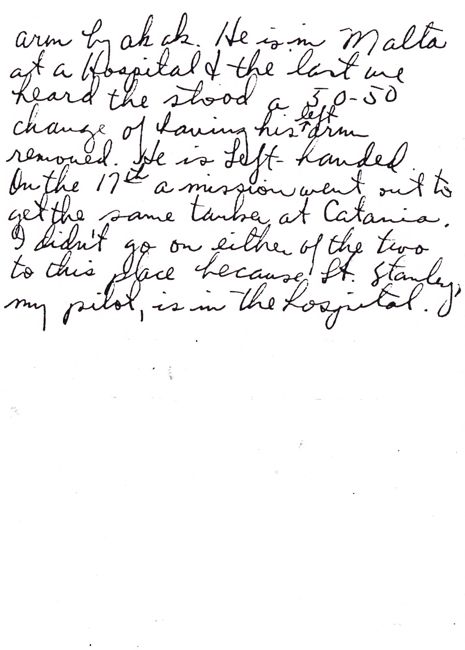 arm by ak ak. He is in Malta
at a Hospital & the last we
heard the stood a 50-50
change of having his left arm
removed. He is Left-handed.
On the 17th a mission went out to
get the same tanker at Catania.
I didn't go on either of the two
to this place because Lt. Stanley,
my pilot, is in the hospital.